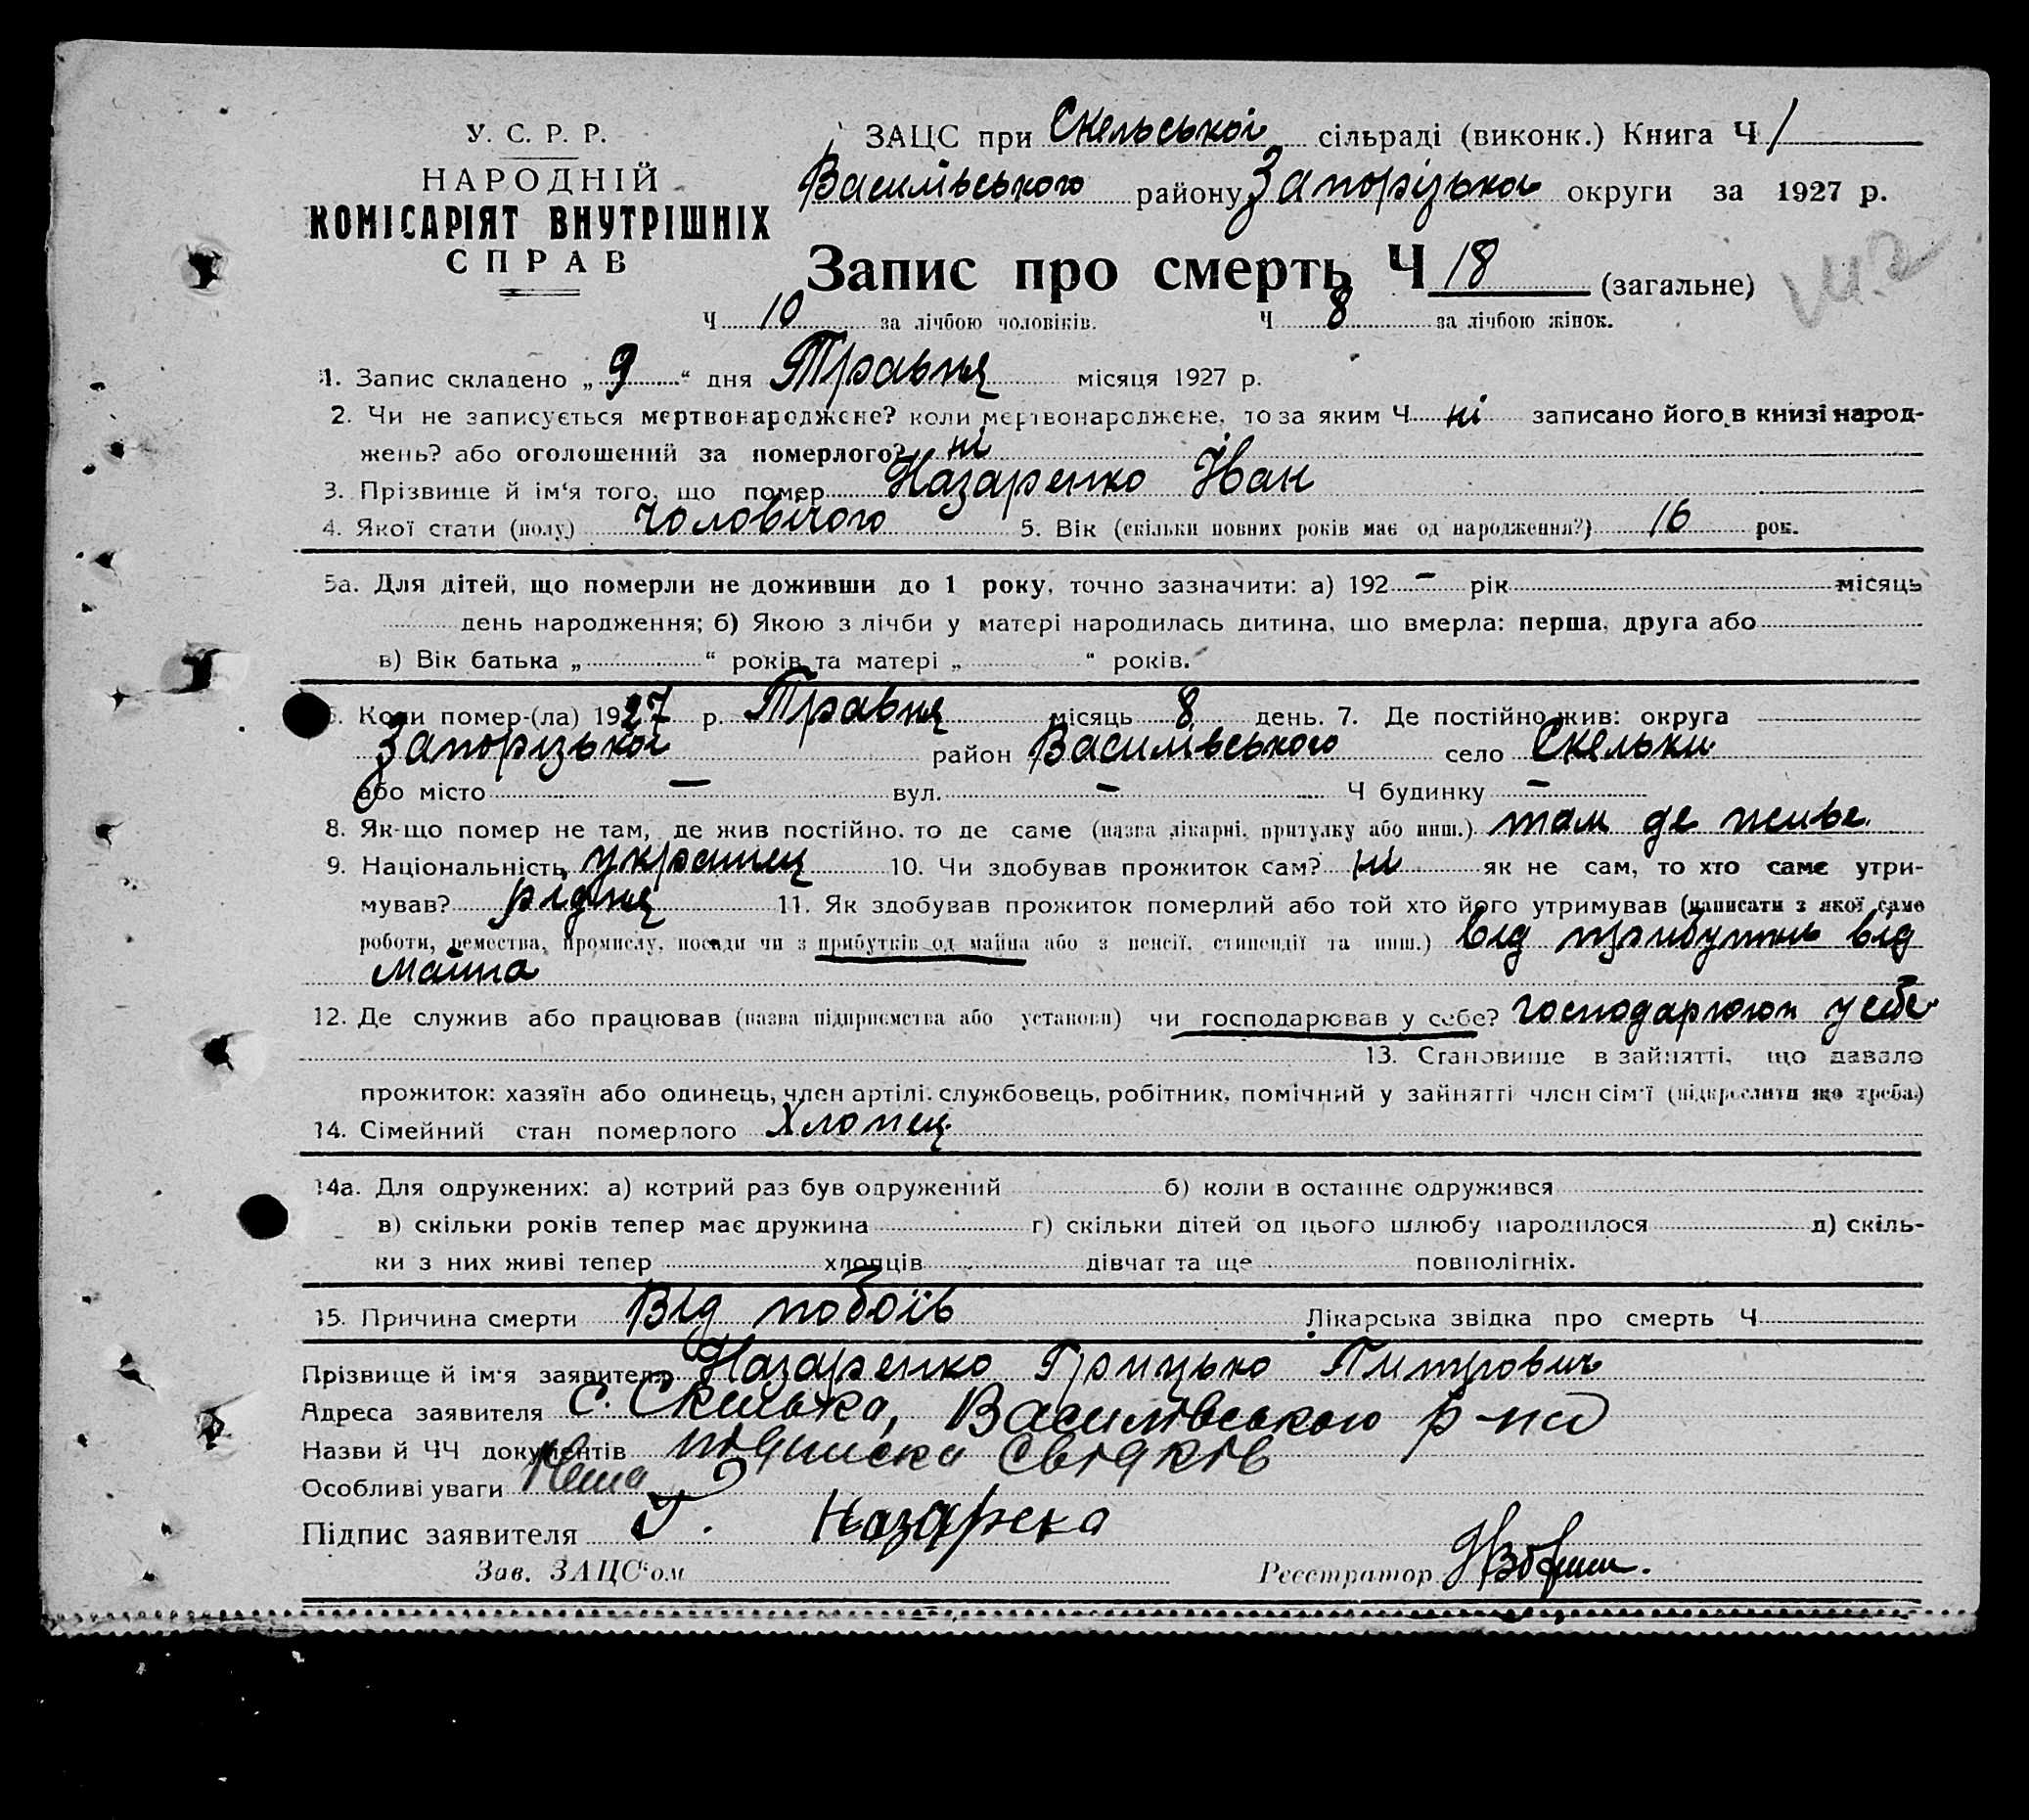 У. С. Р. Р.
НАРОДНІЙ
КОМІСАРІЯТ ВНУТРІШНІХ
СПРАВ
ЗАЦС при Скельської сільраді (виконк.) Книга Ч 1
Василівського району Запорізької округи за 1927 р.
Запис про смерть Ч 18 (загальне)
Ч 10 за лічбою чоловіків. Ч 8 за лічбою жінок.
1. Запис складено „ 9 “ дня Травня місяця 1927 р.
2. Чи не записується мертвонароджене? коли мертвонароджене, то за яким Ч ні записано його в книзі народ-
жень? або оголошений за померлого? ні
3. Прізвище й ім‘я того, що помер Назаренко Іван
4. Якої стати (полу) чоловічого 5. Вік (скільки повних років має од народження?) 16 рок.
5а. Для дітей, що померли не доживши до 1 року, точно зазначити: а) 192 – рік місяць
день народження; б) Якою з лічби у матері народилась дитина, що вмерла: перша, друга або
в) Вік батька „ “ років та матері „ “ років.
6. Коли помер-(ла) 1927 р. Травня місяць 8 день. 7. Де постійно жив: округа
Запорізької район Василівського село Скельки
або місто – вул. – Ч будинку –
8. Як-що помер не там, де жив постійно, то де саме (назва лікарні, притулку або инш.) там де живе
9. Національність українец 10. Чи здобував прожиток сам? ні як не сам, то хто саме утри-
мував? рідня 11. Як здобував прожиток померлий або той хто його утримував (написати з якої само
роботи, ремества, промислу, посади чи з прибутків од майна або з пенсії, стипендії та инш.) від прибутків від
майна
12. Де служив або працював (назва підприємства або установи) чи господарював у себе? господарював у себе
13. Становище в зайнятті, що давало
прожиток: хазяїн або одинець, член артілі, службовець, робітник, помічний у зайнятті член сім‘ї (підкреслити що треба)
14. Сімейний стан померлого Хлопец
14а. Для одружених: а) котрий раз був одружений б) коли в останнє одружився
в) скільки років тепер має дружина г) скільки дітей од цього шлюбу народилося д) скіль-
ки з них живі тепер хлопців дівчат та ще повнолітніх.
15. Причина смерти Від побоїв Лікарська звідка про смерть Ч
Прізвище й ім‘я заявителя Назаренко Грицько Питрович
Адреса заявителя с. Скелька, Василівського р-на
Назви й ЧЧ документів підписка свідків
Особливі уваги Нема
Підпис заявителя Г. Назарека
Зав. ЗАЦС‘ом Реєстратор